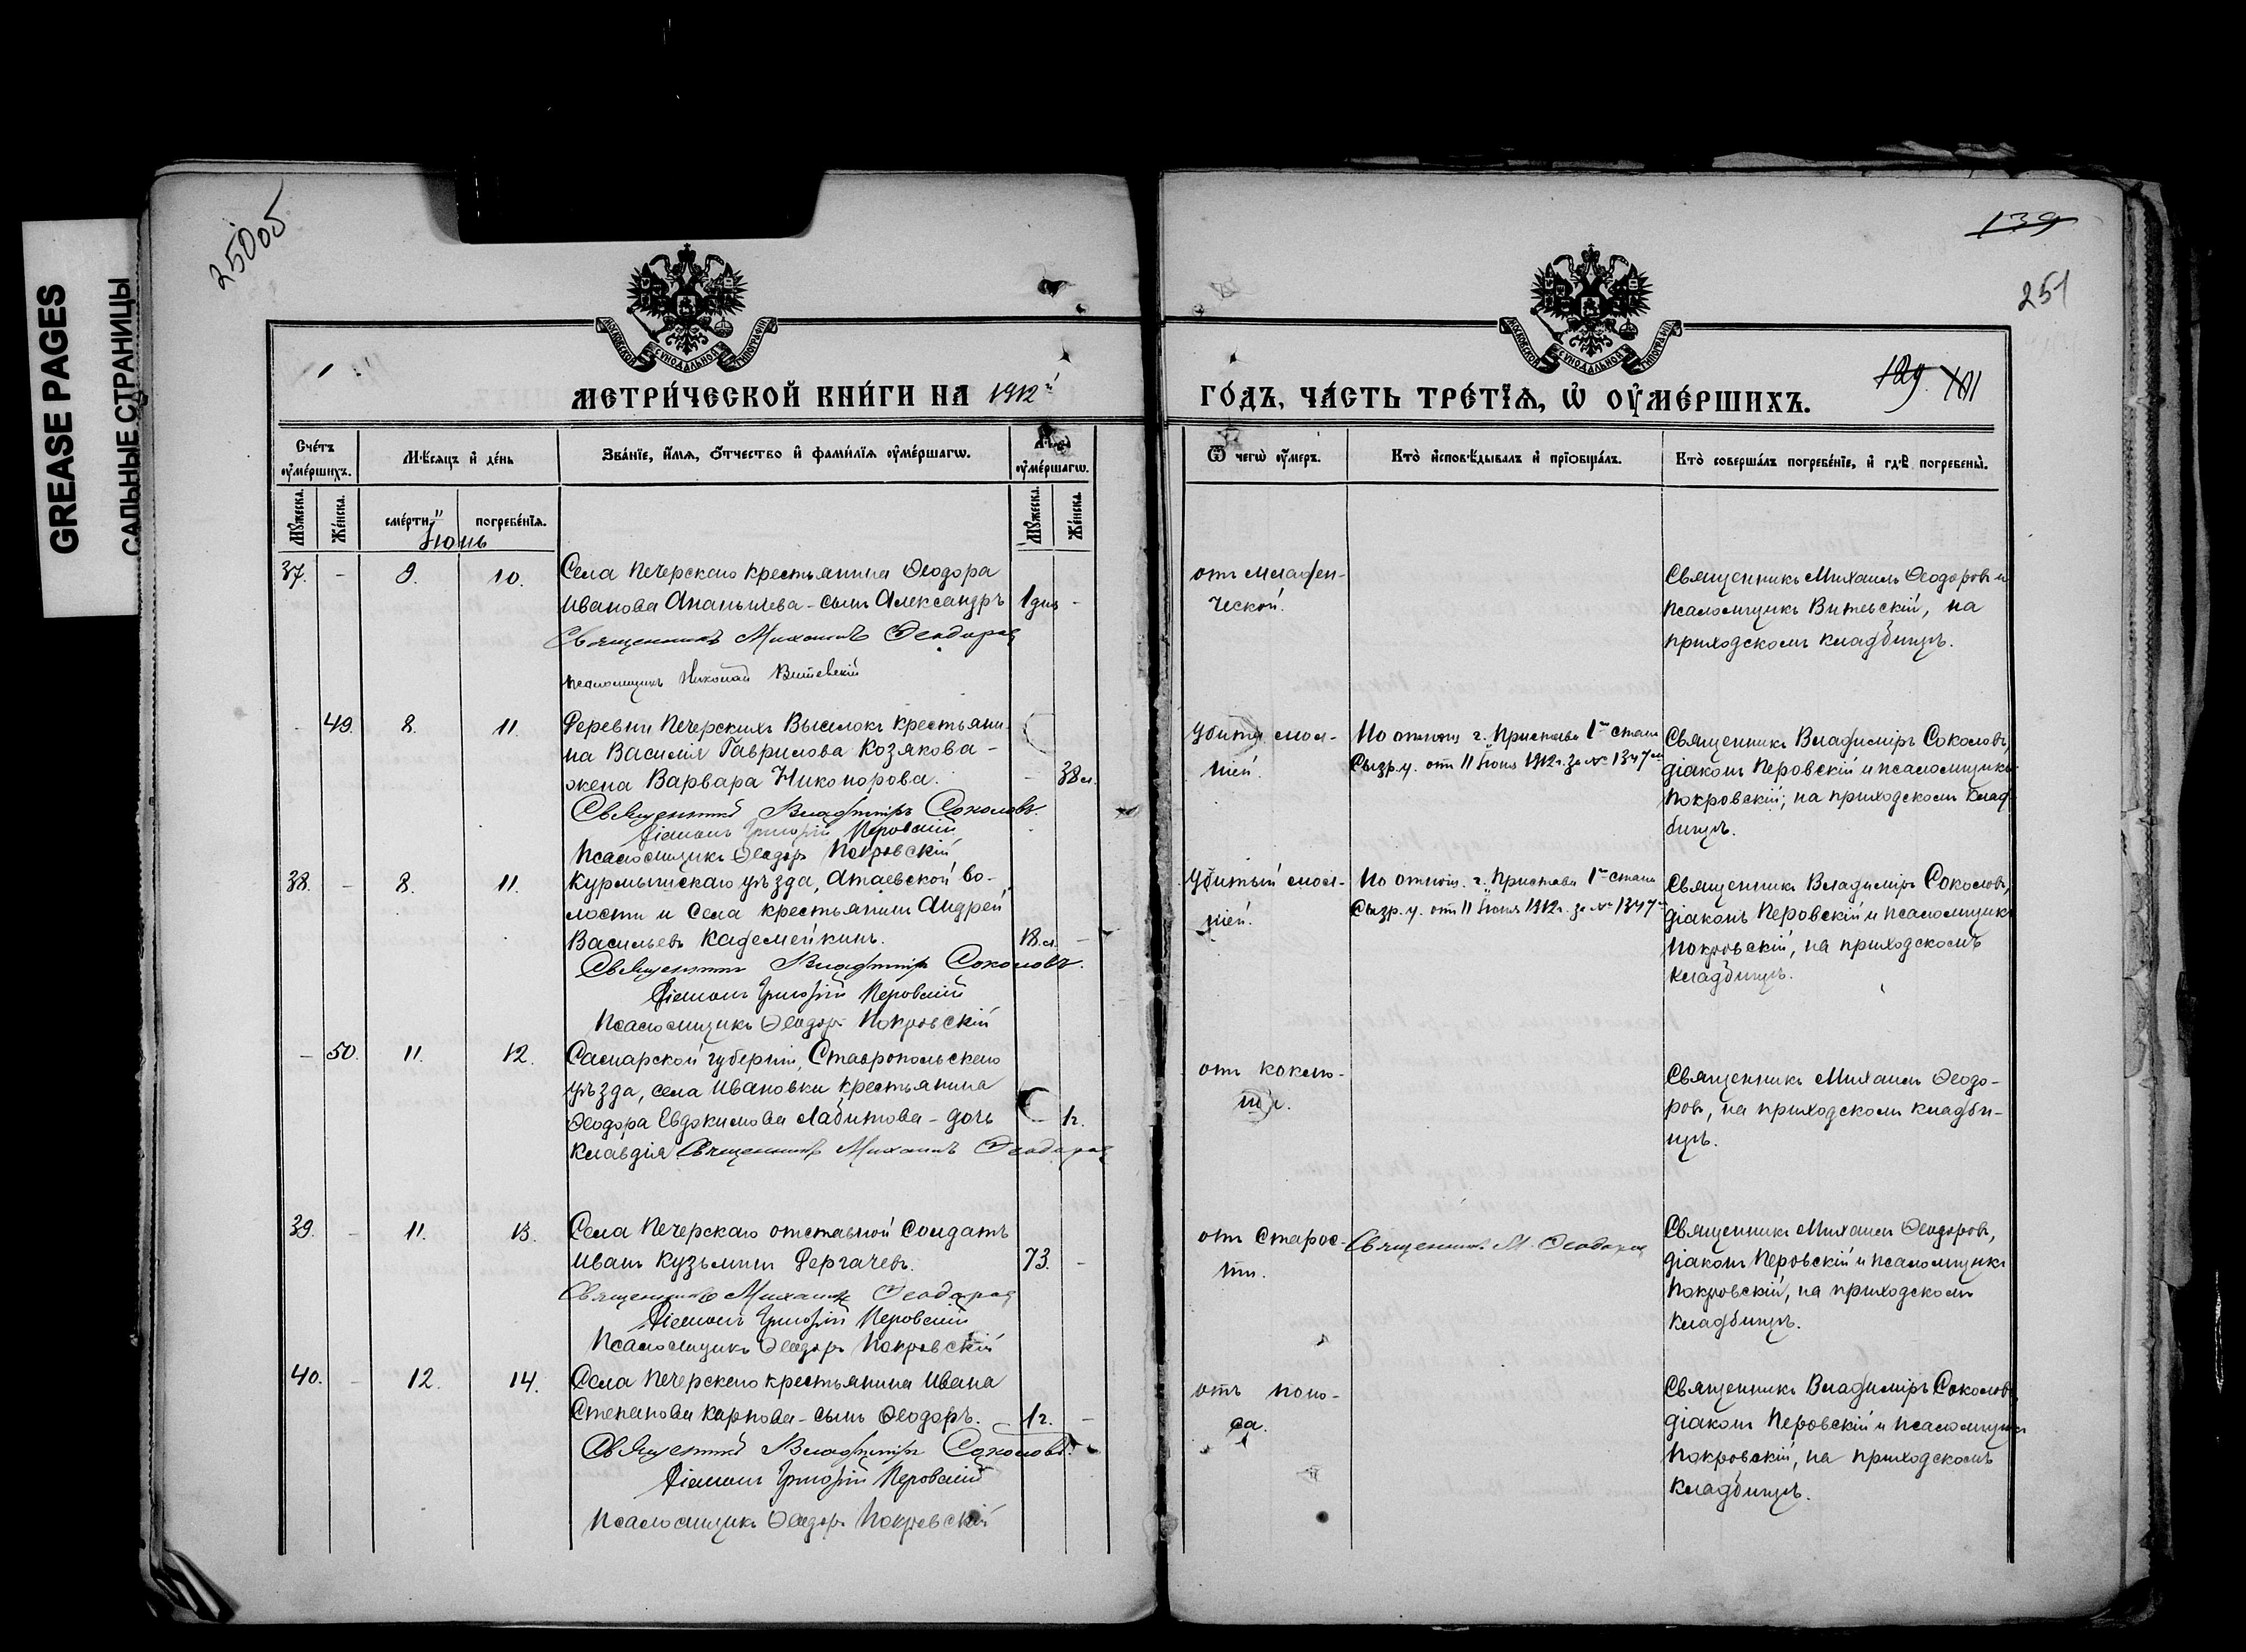 GREASE PAGES
САЛЬНЫЕ СТРАНИЦЫ
25005
139
251
МОСКОВСКОЙ СУНОДАЛЬНОЙ ТИПОГРАФІИ
МОСКОВСКОЙ СУНОДАЛЬНОЙ ТИПОГРАФІИ
МЕТРИ́ЧЕСКОЙ КНИ́ГИ НА 1912й
ГО́ДЪ, ЧА́СТЬ ТРЕ́ТЇѦ, Ѡ҆ ОУ҆МЕ́РШИХЪ.
129. 101
Сче́тъ оу҆ме́ршихъ.
Мѣ́сяцъ и҆ де́нь
Зва́нїе, и҆́мѧ, ѻ҆́тчество и҆ фами́лїѧ оу҆ме́ршагѡ.
оу҆ме́ршагѡ.
Ѿ чегѡ̀ оу҆́меръ.
Кто̀ и҆сповѣ́дывалъ и҆ прїѡбща́лъ.
Кто̀ соверша́лъ погребе́нїе, и҆ гдѣ̀ погребены̀.
Мꙋ́жеска.
Же́нска.
сме́рти.
погребе́нїѧ.
Мꙋ́жеска.
Же́нска.
Іюнь
37. - 9. 10. Села Печерскаго крестьянина Ѳеодора
Иванова Ананьичева - сынъ Александръ 1 днь -
Священникъ Михаилъ Ѳеодоровъ
псаломщикъ Николай Витевскій
отъ младен-
ческой.
Священникъ Михаилъ Ѳеодоровъ и
псаломщикъ Витевскій, на
приходскомъ кладбищѣ.
- 49. 8. 11. Деревни Печерскихъ Выселокъ крестьяни-
на Василія Гаврилова Козякова -
жена Варвара Никонорова. - 38 л.
Священникъ Владиміръ Соколовъ.
Діаконъ Григорій Перовскій
Псаломщикъ Ѳеодоръ Покровскій
Убита мол-
ніей.
По отнош. г. Пристава 1го стана
Сызр. у. отъ 11 Іюня 1912 г. за № 1347м
Священникъ Владиміръ Соколовъ,
діаконъ Перовскій и псаломщикъ
Покровскій; на приходскомъ клад-
бищѣ.
38. - 8. 11. Курмышскаго уѣзда, Атаевской во-
лости и села крестьянинъ Андрей
Васильевъ Кадемейкинъ. 18 л. -
Священникъ Владиміръ Соколовъ.
Діаконъ Григорій Перовскій
Псаломщикъ Ѳеодоръ Покровскій
Убитый мол-
ніей.
По отнош. г. Пристава 1го стана
Сызр. у. отъ 11 Іюня 1912 г. за № 1347м
Священникъ Владиміръ Соколовъ,
діаконъ Перовскій и псаломщикъ
Покровскій, на приходскомъ
кладбищѣ.
- 50. 11. 12. Самарской губерніи, Ставропольскаго
уѣзда, села Ивановки крестьянина
Ѳеодора Евдокимова Лабитова - дочь - 1 г.
Клавдія Священникъ Михаилъ Ѳеодоровъ
отъ коклю-
ша.
Священникъ Михаилъ Ѳеодо-
ровъ, на приходскомъ кладби-
щѣ.
39. - 11. 13. Села Печерскаго отставной солдатъ
Иванъ Кузьминъ Дергачевъ. 73. -
Священникъ Михаилъ Ѳеодоровъ
Діаконъ Григорій Перовскій
Псаломщикъ Ѳеодоръ Покровскій
отъ старос-
ти.
Священникъ М. Ѳеодоровъ
Священникъ Михаилъ Ѳеодоровъ,
діаконъ Перовскій и псаломщикъ
Покровскій, на приходскомъ
кладбищѣ.
40. - 12. 14. Села Печерскаго крестьянина Ивана
Степанова Карпова - сынъ Ѳеодоръ. 1 г. -
Священникъ Владиміръ Соколовъ.
Діаконъ Григорій Перовскій
Псаломщикъ Ѳеодоръ Покровскій
отъ поно-
са.
Священникъ Владиміръ Соколовъ
діаконъ Перовскій и псаломщикъ
Покровскій, на приходскомъ
кладбищѣ.